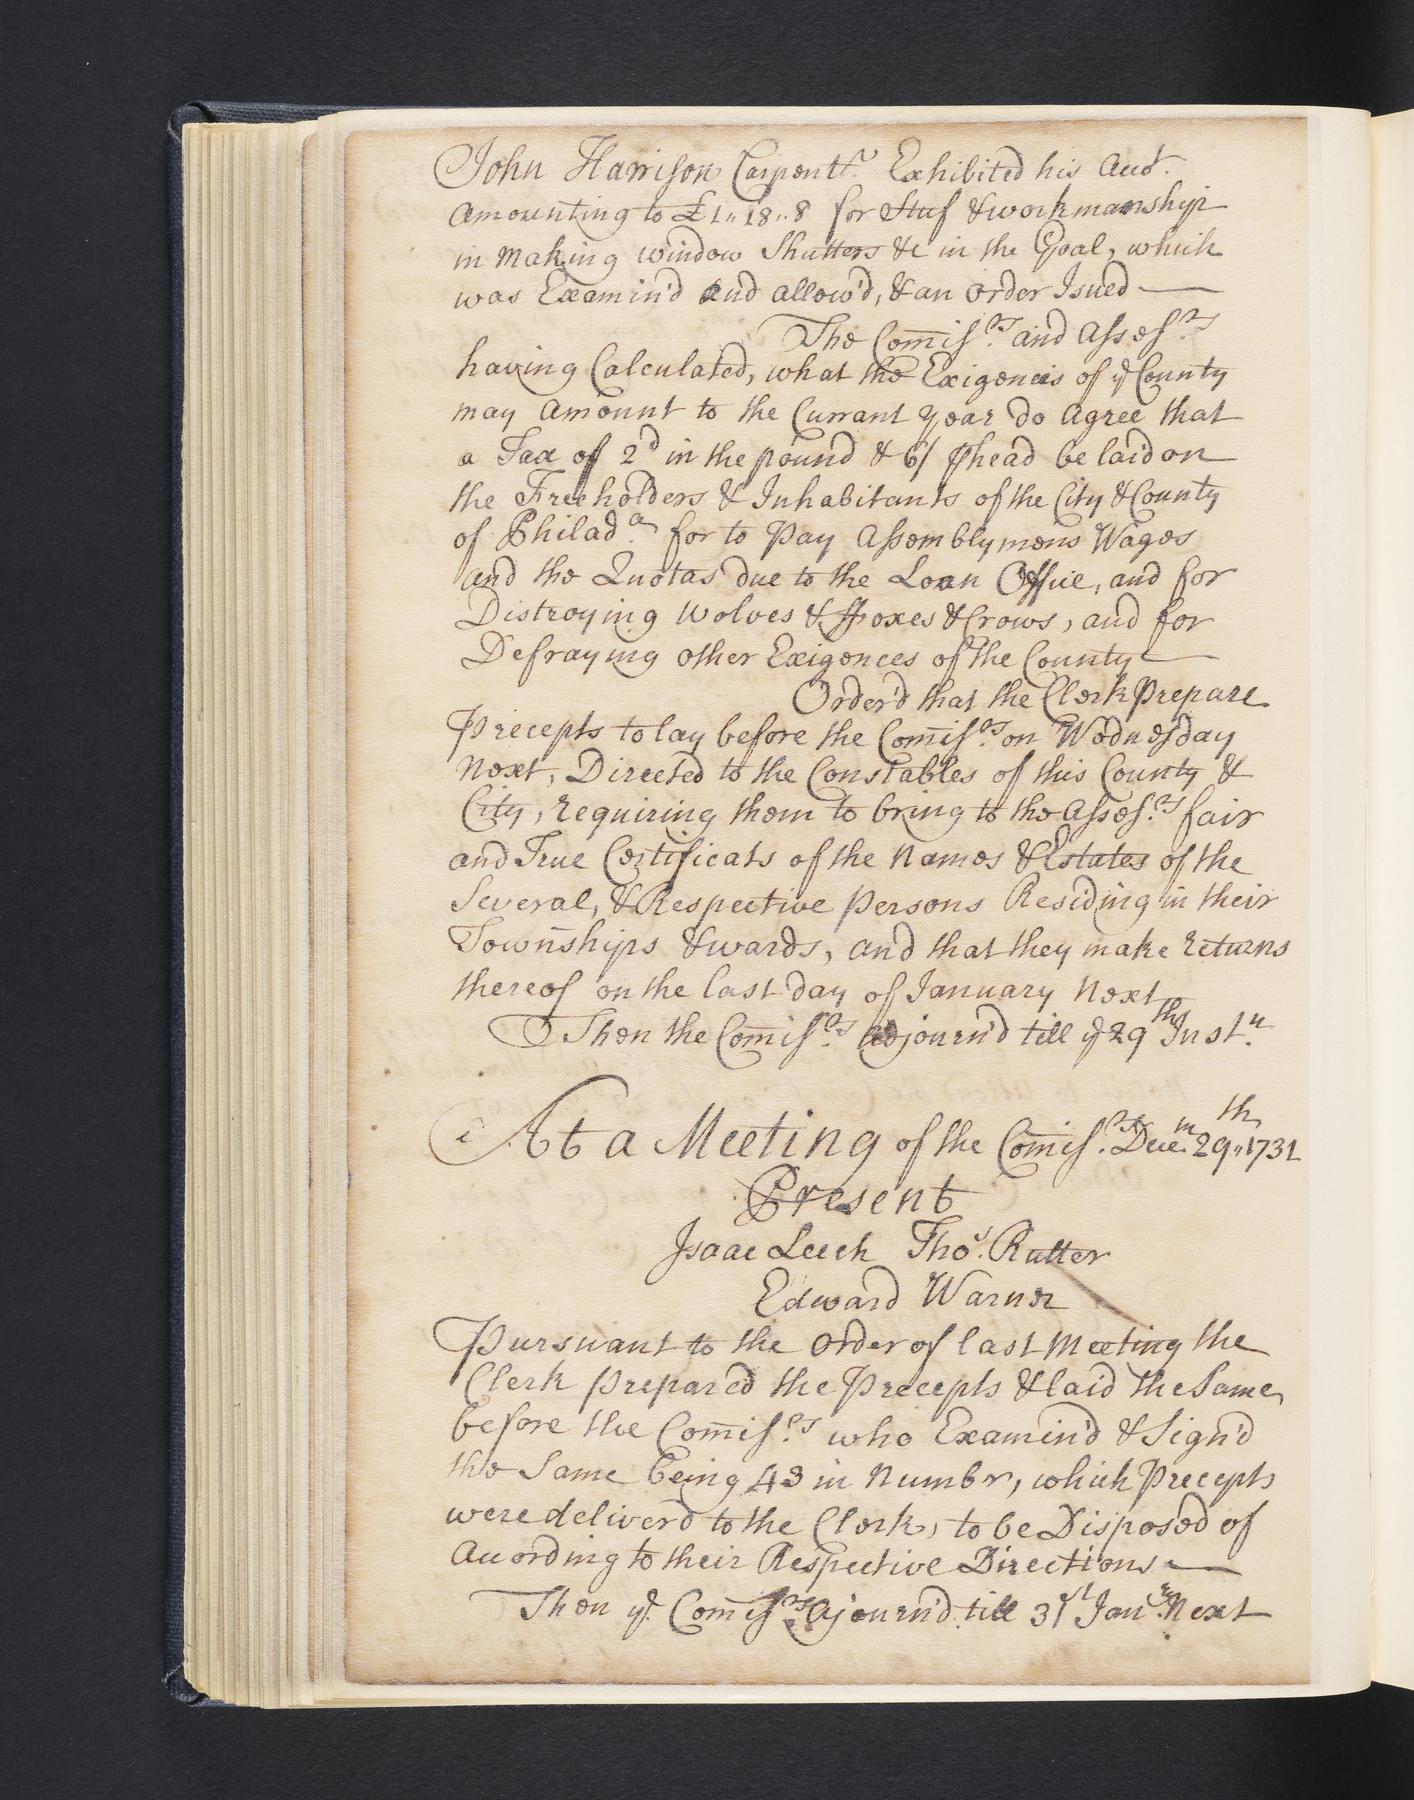 John Harrison Carpentr. Exhibited his Acct.
Amounting to £1,,18,,8 for Stuf & workmanship
in Making window Shutters &c in the Goal, which
was Examin'd and allow'd, & an order Isued
The Comissrs. and Assessrs.
having Calculated, what the Exigenceis of ye County
may amount to the Currant year do Agree that
a Tax of 2d in the pound & 6/ ⅌ head be laid on
the Freeholders & Inhabitants of the City & County
of Philada. for to Pay Assemblymens Wages
and the Quotas due to the Loan Office, and for
Distroying Wolves & ffoxes & Crows, and for
Defraying other Exigences of the County
Order'd that the Clerk Prepare
Precepts to lay before the Comissrs. on Wednesday
Next, Directed to the Constables of this County &
City, requiring them to bring to the Assessrs. fair
and True Certificats of the Names & Estates of the
Several, & Respective Persons Residing in their
Townships & wards, and that they make returns
thereof on the last day of January Next
Then the Comissrs. adjourn'd till ye 29th Instn.
At a Meeting of the Comissrs. Decem. 29th,,1731
Present
Isaac Leech Thos. Rutter
Edward Warner
Pursuant to the Order of last Meeting the
Clerk prepared the Precepts & laid the Same
before the Comissrs. who Examin'd & Sign'd
the Same being 43 in Numbr, which Precepts
were deliverd to the Clerk, to be Disposed of
According to their Respective Directions
Then ye. Comissrs. Ajourn'd till 31st Janry. Next